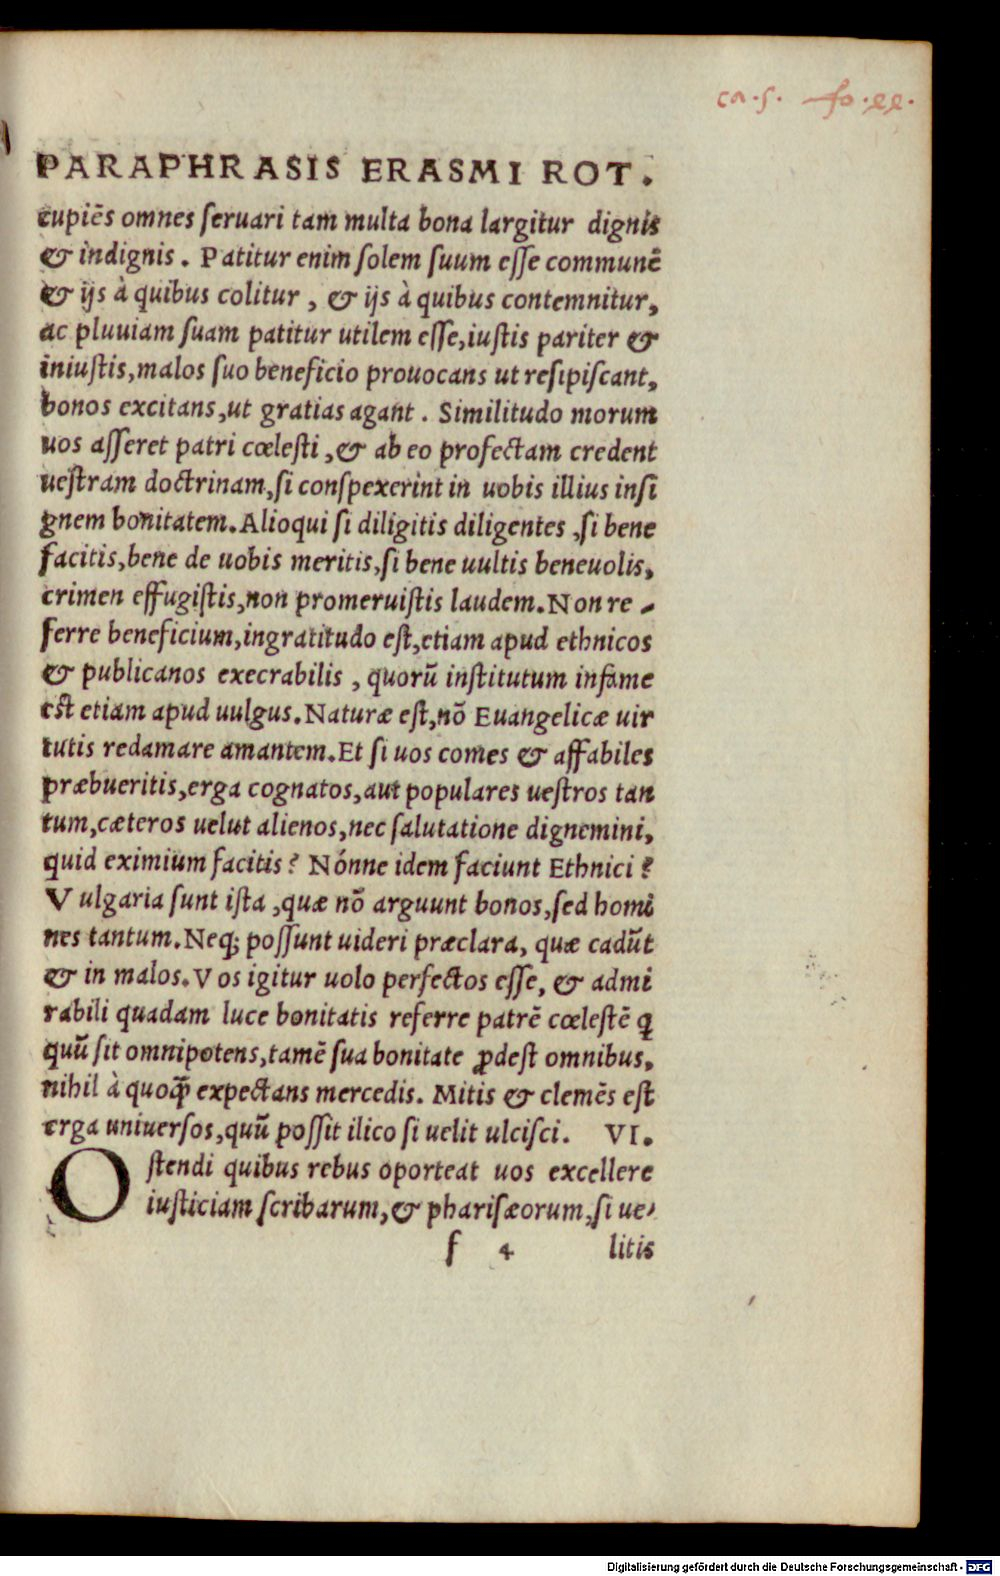 ca. 5. fo. ee.
PARAPHRASIS ERASMI ROT.
cupiēs omnes ſeruari tam multa bona largitur dignis
& indignis. Patitur enim ſolem ſuum eſſe communē
& ijs à quibus colitur, & ijs à quibus contemnitur,
ac pluuiam ſuam patitur utilem eſſe, iuſtis pariter &
iniuſtis, malos ſuo beneficio prouocans ut reſipiſcant,
bonos excitans, ut gratias agant. Similitudo morum
uos aſſeret patri cœleſti, & ab eo profectam credent
ueſtram doctrinam, ſi conſpexerint in uobis illius inſi
gnem bonitatem. Alioqui ſi diligitis diligentes, ſi bene
facitis, bene de uobis meritis, ſi bene uultis beneuolis,
crimen effugiſtis, non promeruiſtis laudem. Non re-
ferre beneficium, ingratitudo eſt, etiam apud ethnicos
& publicanos execrabilis, quorū inſtitutum infame
eſt etiam apud uulgus. Naturæ eſt, nō Euangelicæ uir
tutis redamare amantem. Et ſi uos comes & affabiles
præbueritis, erga cognatos, aut populares ueſtros tan
tum, cæteros uelut alienos, nec ſalutatione dignemini,
quid eximium facitis? Nónne idem faciunt Ethnici?
Vulgaria ſunt iſta, quæ nō arguunt bonos, ſed homi
nes tantum. Neq; poſſunt uideri præclara, quæ cadūt
& in malos. Vos igitur uolo perfectos eſſe, & admi
rabili quadam luce bonitatis referre patrē cœleſtē ꝗ
quū ſit omnipotens, tamē ſua bonitate ꝓdeſt omnibus,
nihil à quoq̃ꝫ expectans mercedis. Mitis & clemēs eſt
erga uniuerſos, quū poſſit ilico ſi uelit ulciſci. VI.
Oſtendi quibus rebus oporteat uos excellere
iuſticiam ſcribarum, & phariſæorum, ſi ue-
f 4 litis
Digitalisierung gefördert durch die Deutsche Forschungsgemeinschaft - DFG